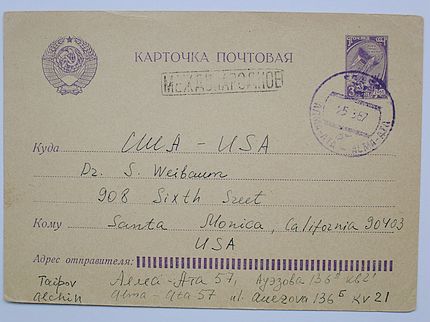 КАРТОЧКА ПОЧТОВАЯ
МЕЖДУНАРОДНОЕ
ALMA-ATA
Куда США - USA
Dr. S. Weibaum
908 Sixth Sreet
Кому Santa Monica, California 90403
USA
Адрес отправителя:
Taipov Алма-Ата 57, Ауэзова 136 кв 21
alchin Alma-Ata 57 ul. Auezova 136 Б Kv 21